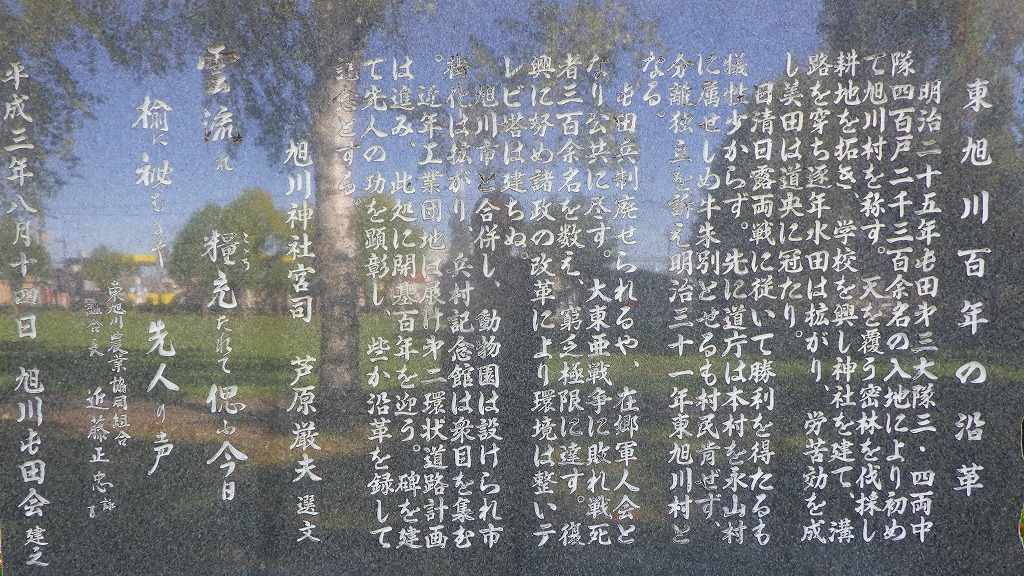 東旭川百年の沿革
明治二十五年屯田才三大隊三・四両中
隊四百戸二千三百余名の入地により初め
て旭川村を称す。天を覆う密林を伐採し
耕地を拓き、学校を興し神社を建て、溝
路を穿ち逐年水田は拡がり、労苦効を成
し美田は道央に冠たり。
日清日露両戦に従いて勝利を得たるも
犠牲少からず。先に道庁は本村を永山村
に属せしめ牛朱別とせるも村民肯ぜず、
分離独立を訴え明治三十一年東旭川村と
なる。
屯田兵制廃せられるや、在郷軍人会と
なり公共に尽す。大東亜戦争に敗れ戦死
者三百余名を数え、窮乏極限に達す。復
興に努め諸政の改革により環境は整いテ
レビ塔は建ちぬ。
旭川市と合併し、動物園は設けられ市
街化は拡がり、兵村記念館は衆目を集む
。近年工業団地は展け才二環状道路計画
は進み、此処に開基百年を迎う。碑を建
て先人の功を顕彰し、些か沿革を録して
記念とする。
旭川神社宮司 芦原巌夫 選文
雲流れ 糧充たれて 偲ふ今日
楡に祕むや 先人の声
東旭川農業協同組合
組合長 近藤正忠
平成三年八月十四日 旭川屯田会 建之